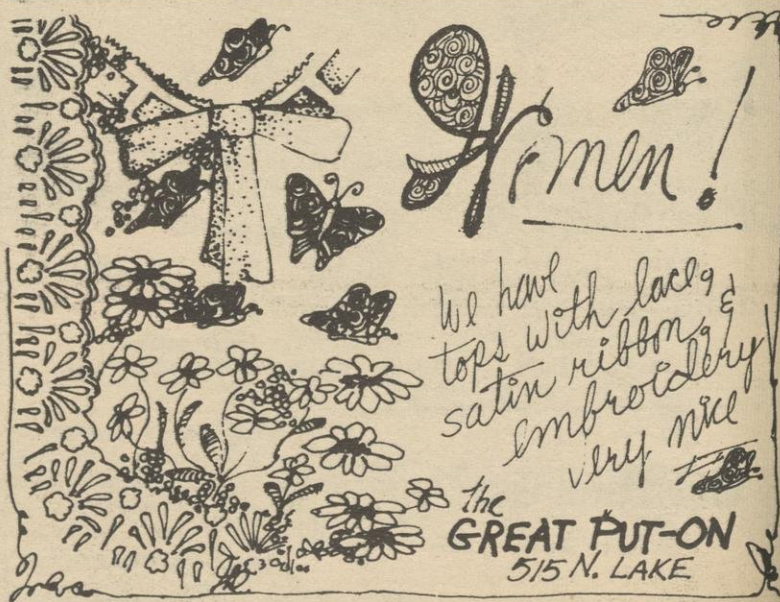 Women!
We have
tops with lace,
satin ribbon, &
embroidery
very nice
the
GREAT PUT-ON
515 N. LAKE